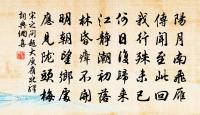 陽月南飛雁
傳聞至此回
我行殊未已
何日復歸來
江靜潮初落
林昏瘴不開
明朝望鄉處
應見隴頭梅
宋之問題大庾嶺北驛
詞典網